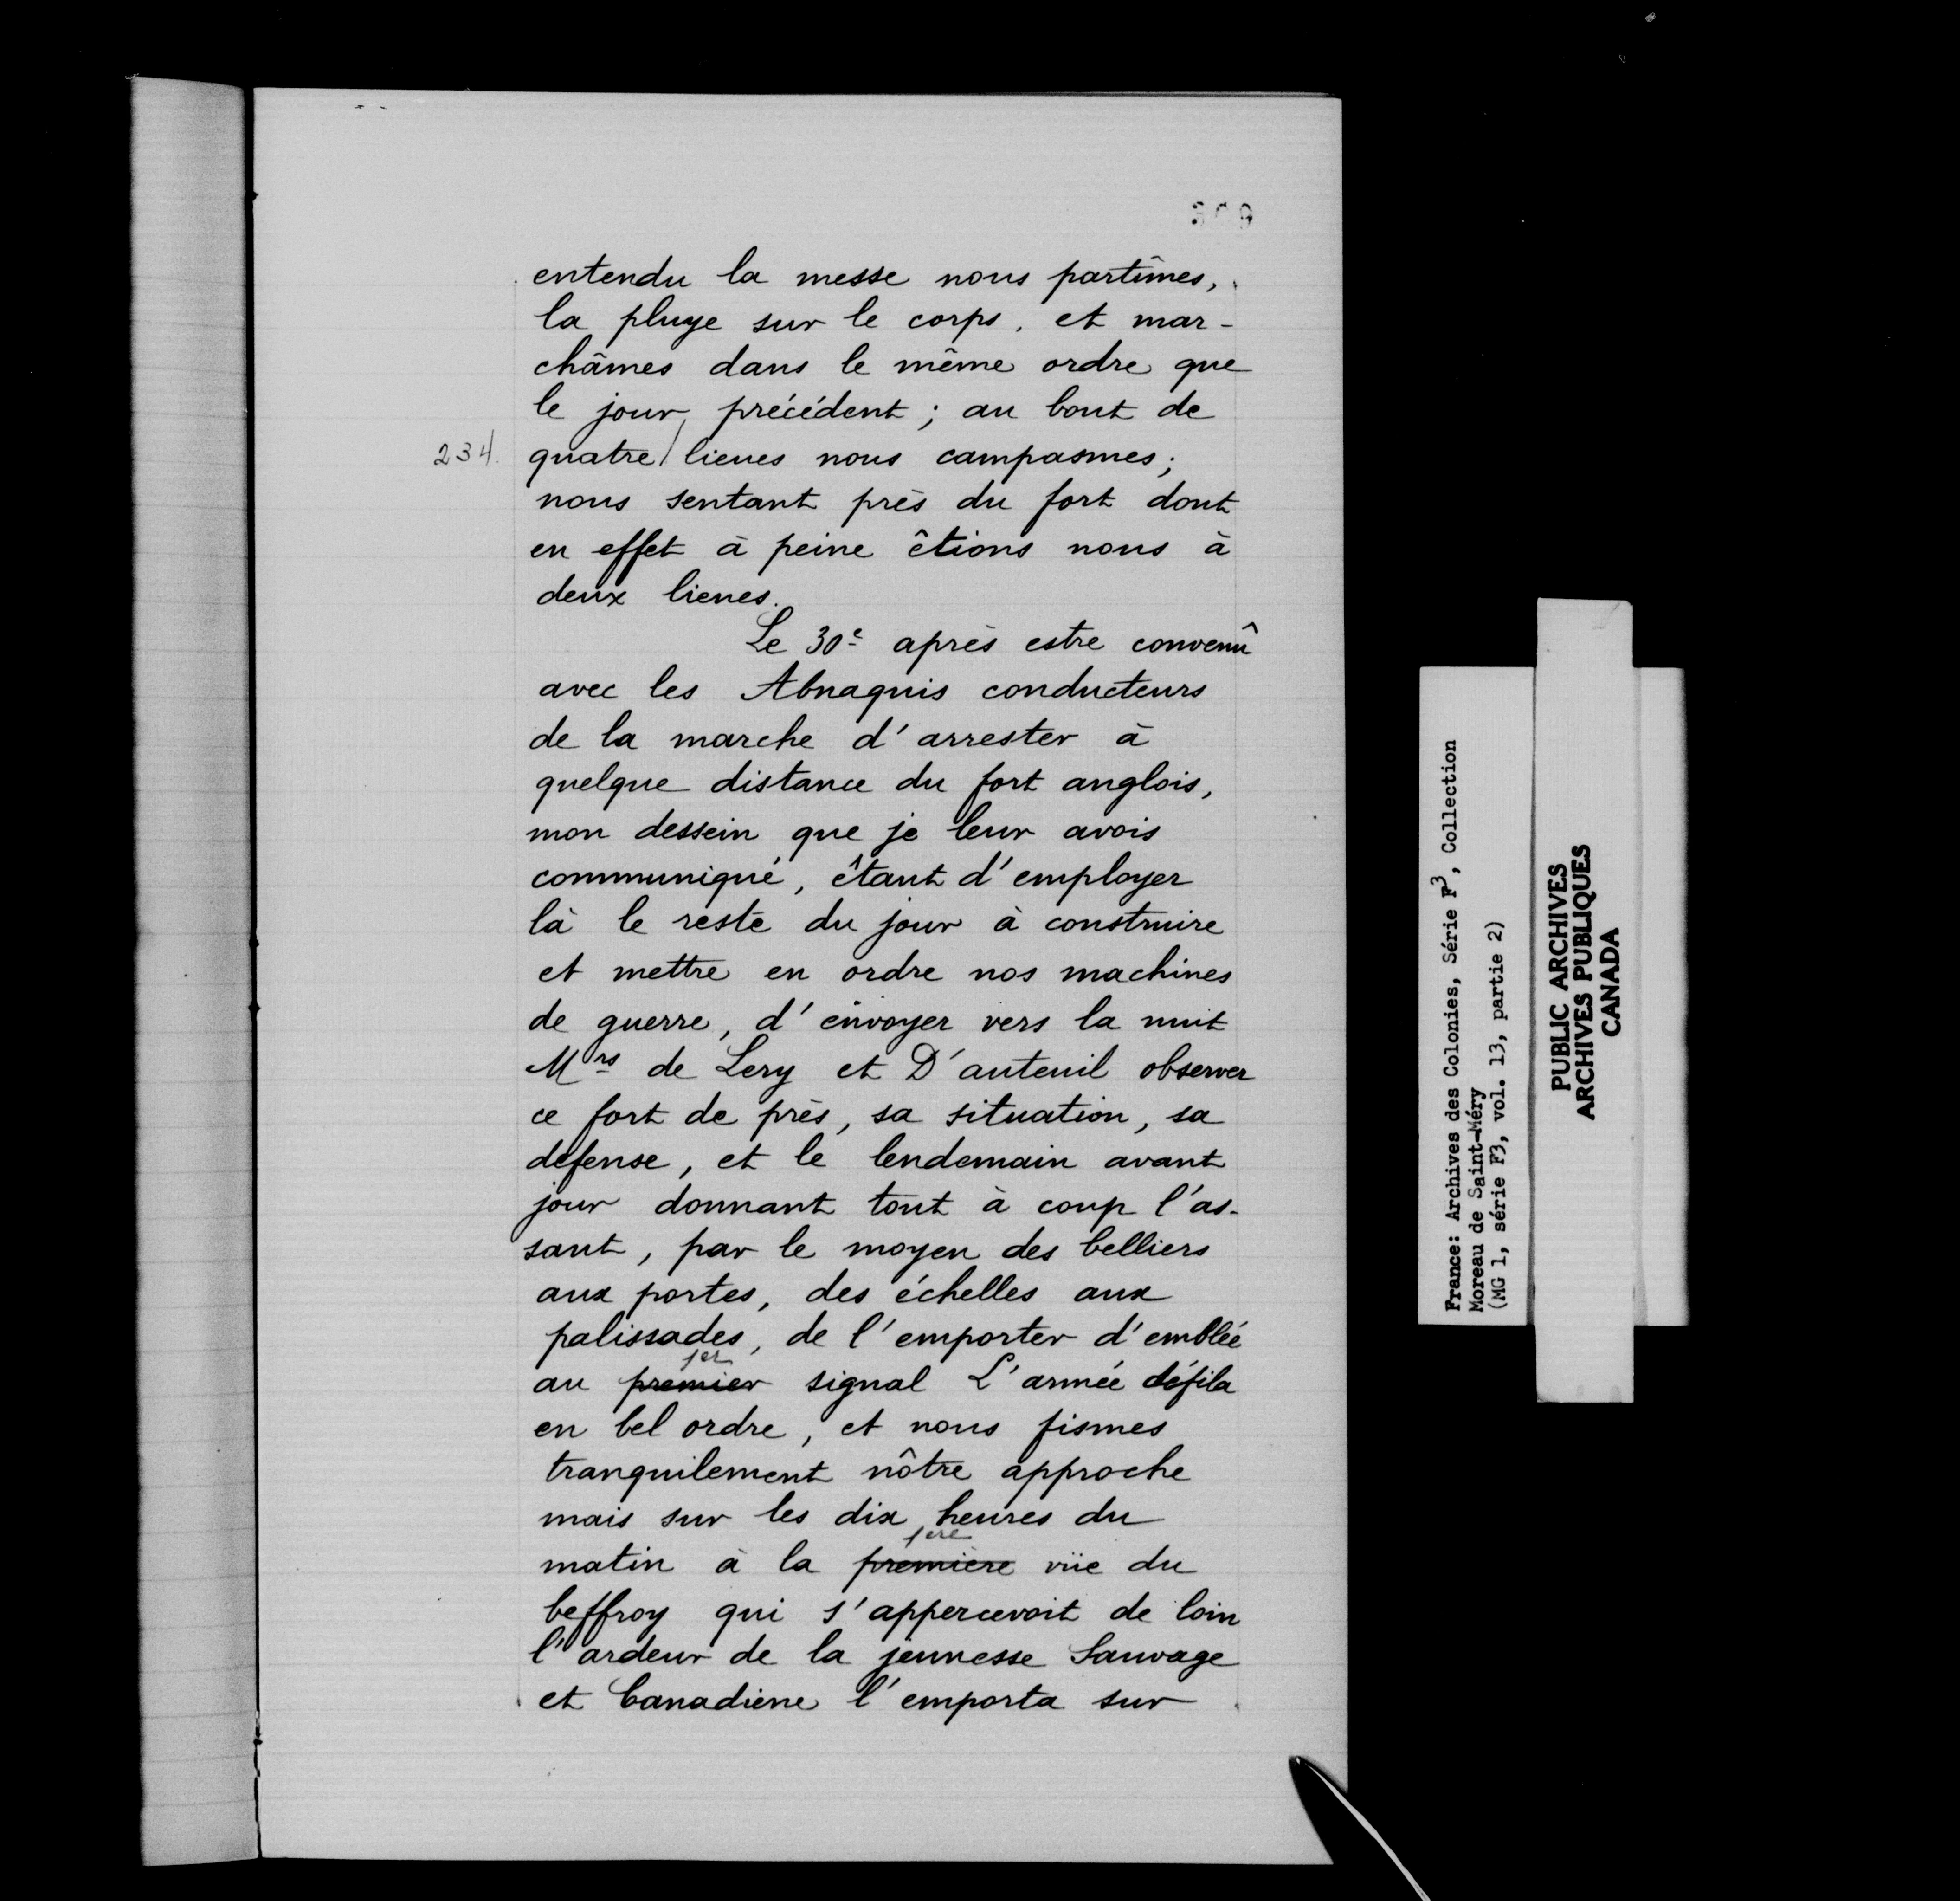 309
entendu la messe nous partîmes,
la pluye sur le corps, et mar-
châmes dans le même ordre que
le jour précédent ; au bout de
234. quatre / lieues nous campasmes ;
nous sentant près du fort dont
en effet à peine êtions nous à
deux lieues.
Le 30e après estre convenû
avec les Abnaquis conducteurs
de la marche d'arrester à
quelque distance du fort anglois,
mon dessein que je leur avois
communiqué, êtant d'employer
là le reste du jour à construire
et mettre en ordre nos machines
de guerre, d'envoyer vers la nuit
Mrs de Lery et D'auteuil observer
ce fort de près, sa situation, sa
défense, et le lendemain avant
jour donnant tout à coup l'as-
saut, par le moyen des belliers
aux portes, des échelles aux
palissades, de l'emporter d'emblée
1er
au premier signal L'armée défila
en bel ordre, et nous fismes
tranquilement nôtre approche
mais sur les dix heures du
1ere
matin à la première vüe du
beffroy qui s'appercevoit de loin
l'ardeur de la jeunesse Sauvage
et Canadiene l'emporta sur
France: Archives des Colonies, Série F3, Collection
Moreau de Saint-Méry
(MG 1, série F3, vol. 13, partie 2)
PUBLIC ARCHIVES
ARCHIVES PUBLIQUES
CANADA